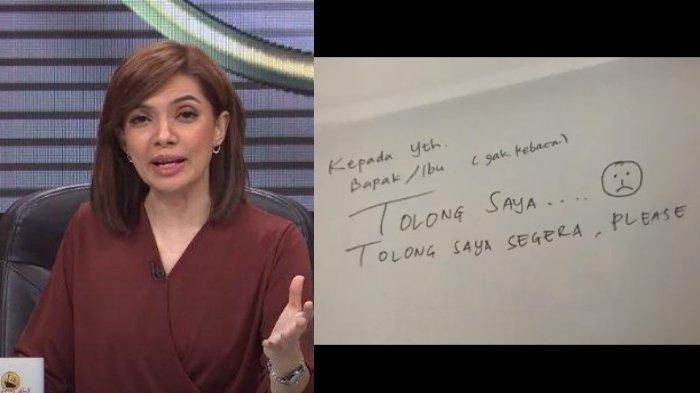 Kepada Yth.
Bapak/Ibu (gak kebaca)
TOLONG SAYA ....
TOLONG SAYA SEGERA, PLEASE